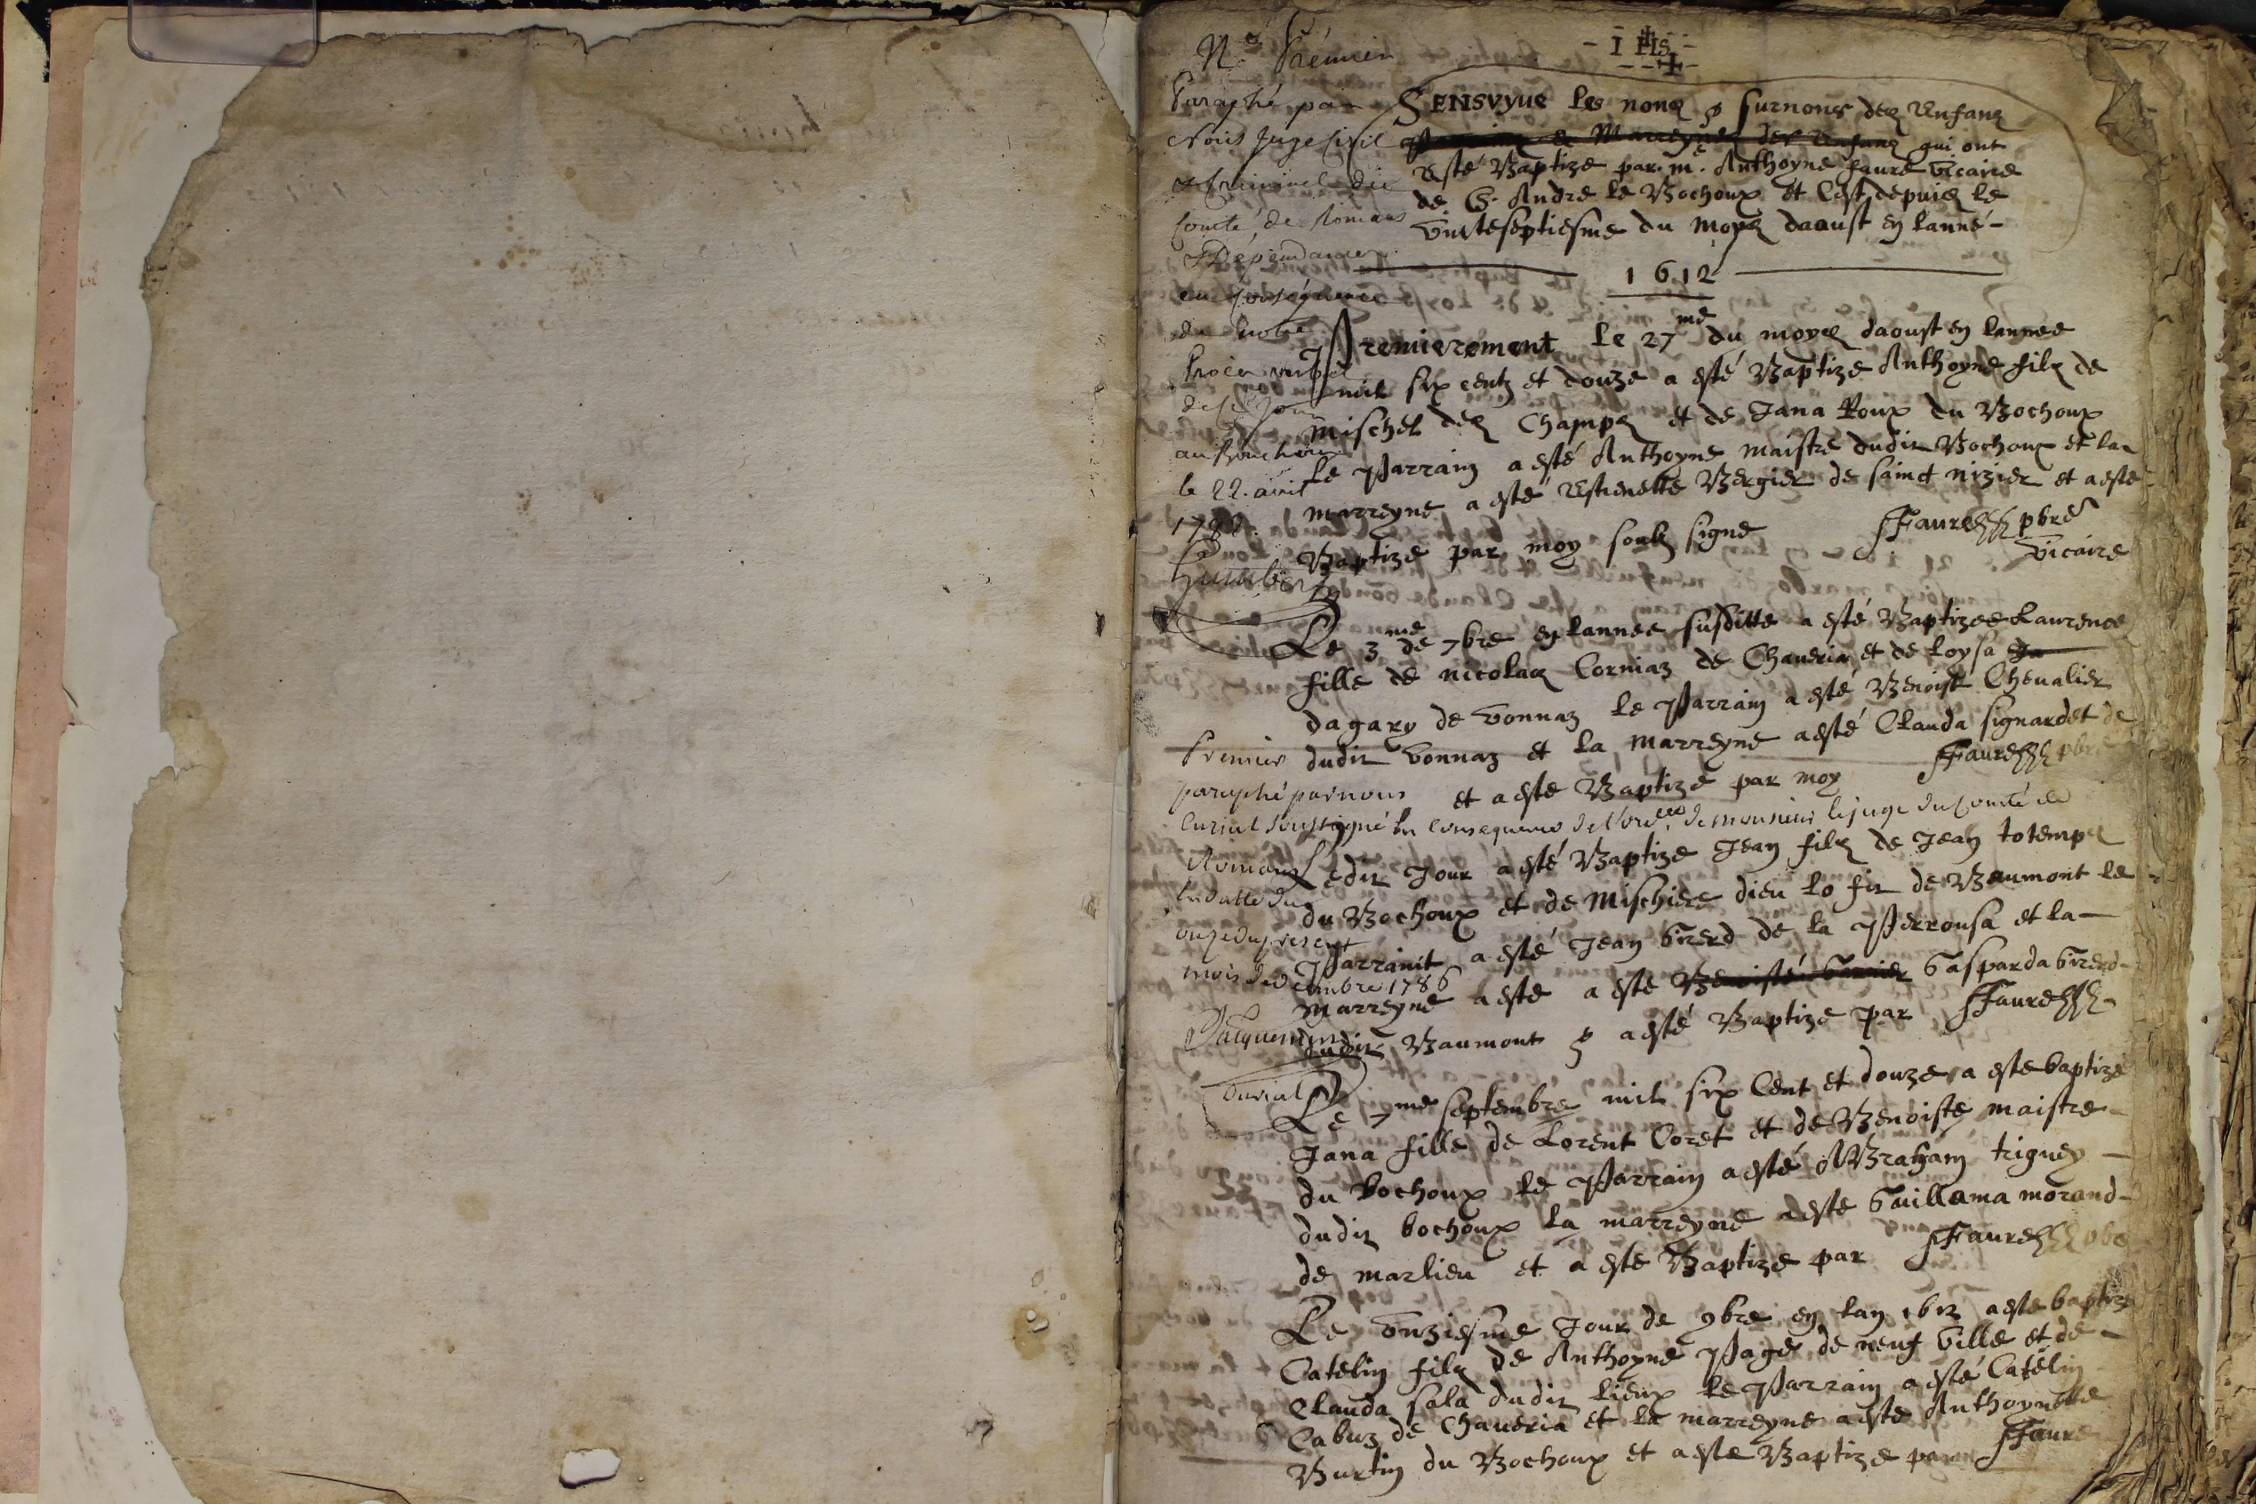 I HS
N° Premier
Paraphé par
Nous Juge Civil
& Criminel du
Comté de Romans
& Dépendances
en conséquence
de notre
Procès verbal
de ce jour
au Bouchoux
le 22. avril
1782.
Humbert
SENSVYVE les noms & surnoms des Enfans
& Marreynes des Enfans qui ont
Esté Baptize par m.e Anthoyne faure vicaire
de S. Andre le Bochoux et Cest depuis le
vintseptiesme du moys daaust en lanné
1612
Premierement le 27me du moys daoust en lannee
mil six centz et douze a esté Baptize Anthoyne filz de
mischel des Champs et de Jana Roux du Bochoux
Le Parrain a esté Anthoyne maistre dudit Bochoux et la
marreyne a esté Estienette Bergier de sainct nizier et a esté
Baptize par moy soubz signe Faure pbre
vicaire
Le 3me de 7bre en lannee susditte a esté Baptizee Laurence
fille de nicolas Corniaz de Chaueria et de Loysa
dagary de vonnaz le Parrain a esté Benoist Cheualier
dudit vonnaz et la marreyne a esté Clauda signardet de
et a este Baptizé par moy Faure pbre
Premier
paraphé par nous
Curial soussigné en consequence de l'ordce de monsieur le juge du comté de
Romans
en datte du
onze du present
mois de decembre 1786
Jacquemin
Curial
Ledit Jour a esté Baptize Jean filz de Jean totemps
du Bochoux et de Mischiere dieu lo fit de Beaumont le
Parrainit a esté Jean Girerd de la Perrousa et la
marreyne a este a este Gasparda Girerd
dudit Baumont & a esté Baptize par Faure
Le 7me septembre mil six Cent et douze a este baptizé
Jana fille de Lorent Coret et de Benoiste maistre
du bochoux le Parrain a esté ABraham triguey
dudit bochoux la marreyne a este Guillama morand
de marlieu et a este Baptize par Faure pbre
Le vnziesme Jour de 9bre en lan 1612 a este baptize
Catelin filz de Anthoyne Page de neuf ville et de
Clauda sala dudit lieux le Parrain a esté Catelin
Cabuz de Chaueria et la marreyne a este Anthoynette
Burtin du Bochoux et a este Baptize par Faure